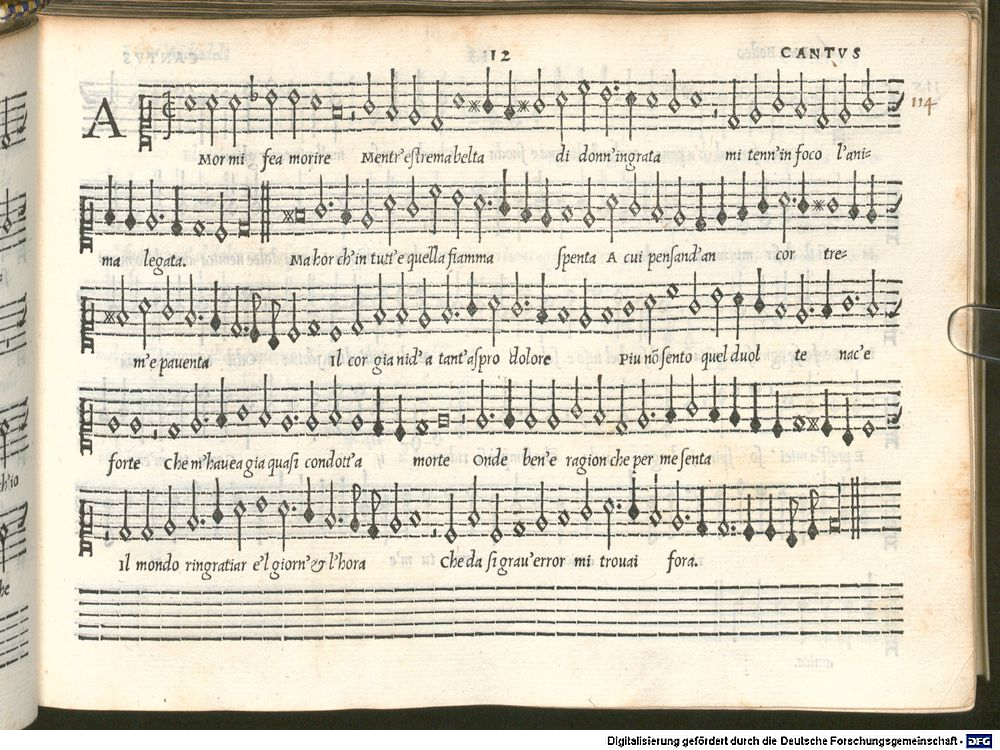 12 CANTVS
114
A Mor mi fea morire Mentr'eſtrema belta di donn'ingrata mi tenn'in foco l'ani-
ma legata. Ma hor ch'in tutt'e quella fiamma ſpenta A cui penſand'an cor tre-
m'e pauenta Il cor gia nid'a tant'aſpro dolore Piu nõ ſento quel duol te nac'e
forte Che m'hauea gia quaſi condott'a morte Onde ben'e ragion che per me ſenta
Il mondo ringratiar e'l giorn'& l'hora Che da ſi grau'error mi trouai fora.
h'io
he
Digitalisierung gefördert durch die Deutsche Forschungsgemeinschaft - DFG